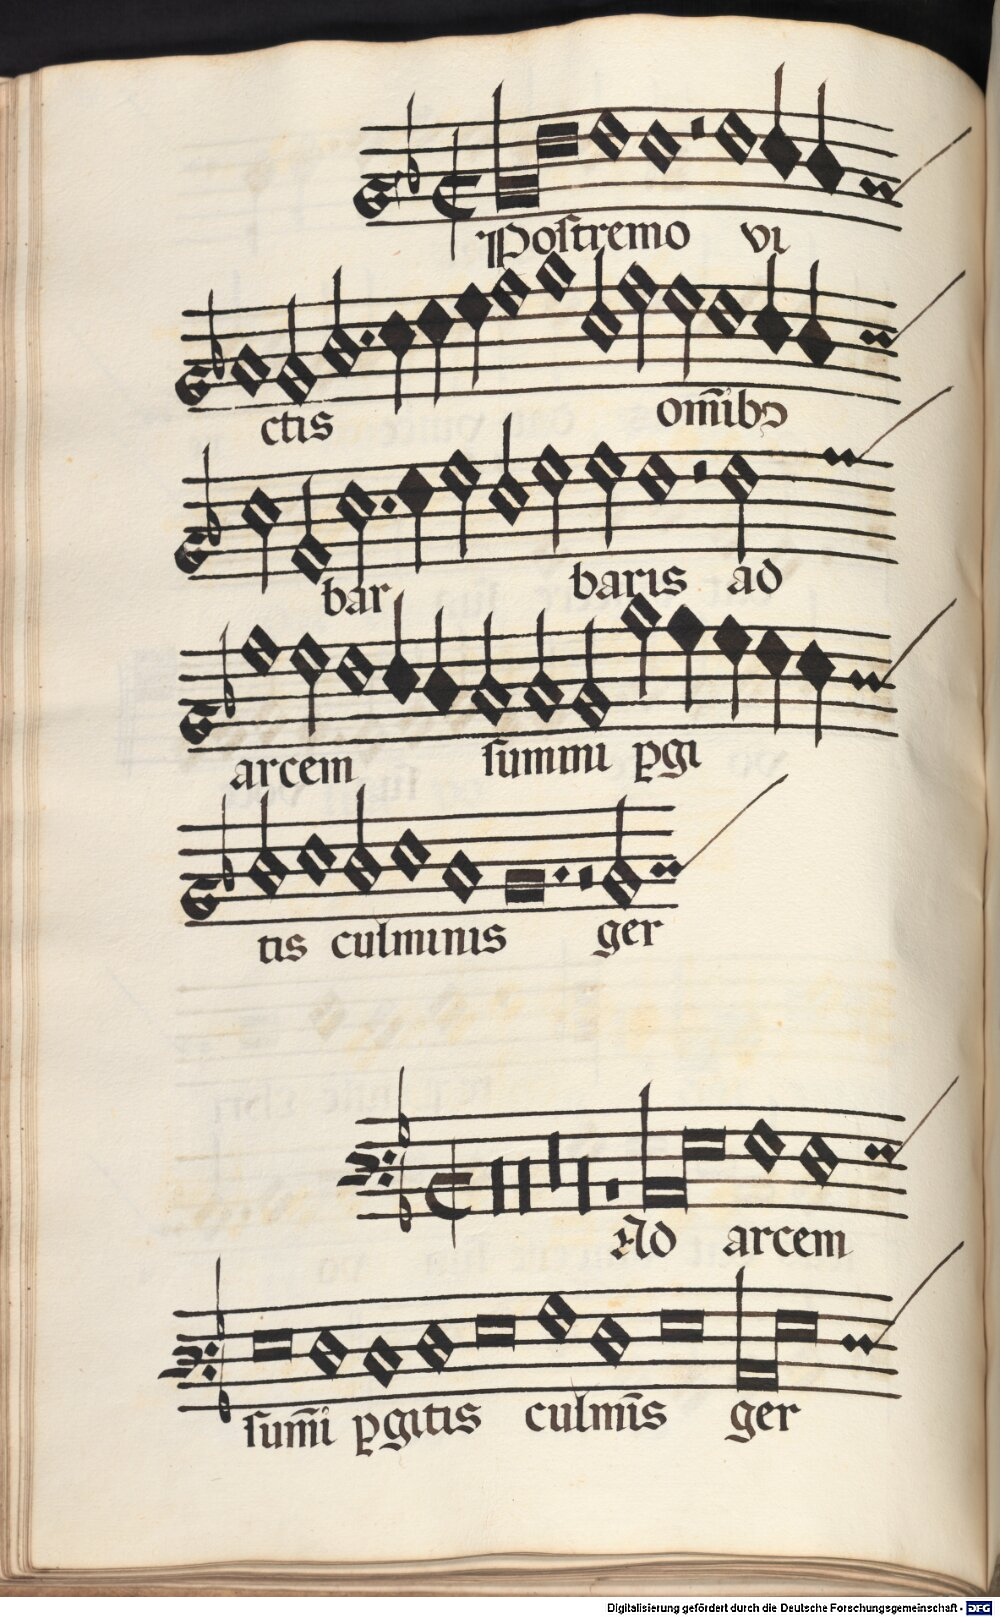 Postremo vi
ctis om̄ibꝰ
bar baris ad
arcem summi ꝑgi
tis culminis ger
Ad arcem
sum̄i ꝑgitis culmīs ger
Digitalisierung gefördert durch die Deutsche Forschungsgemeinschaft - DFG